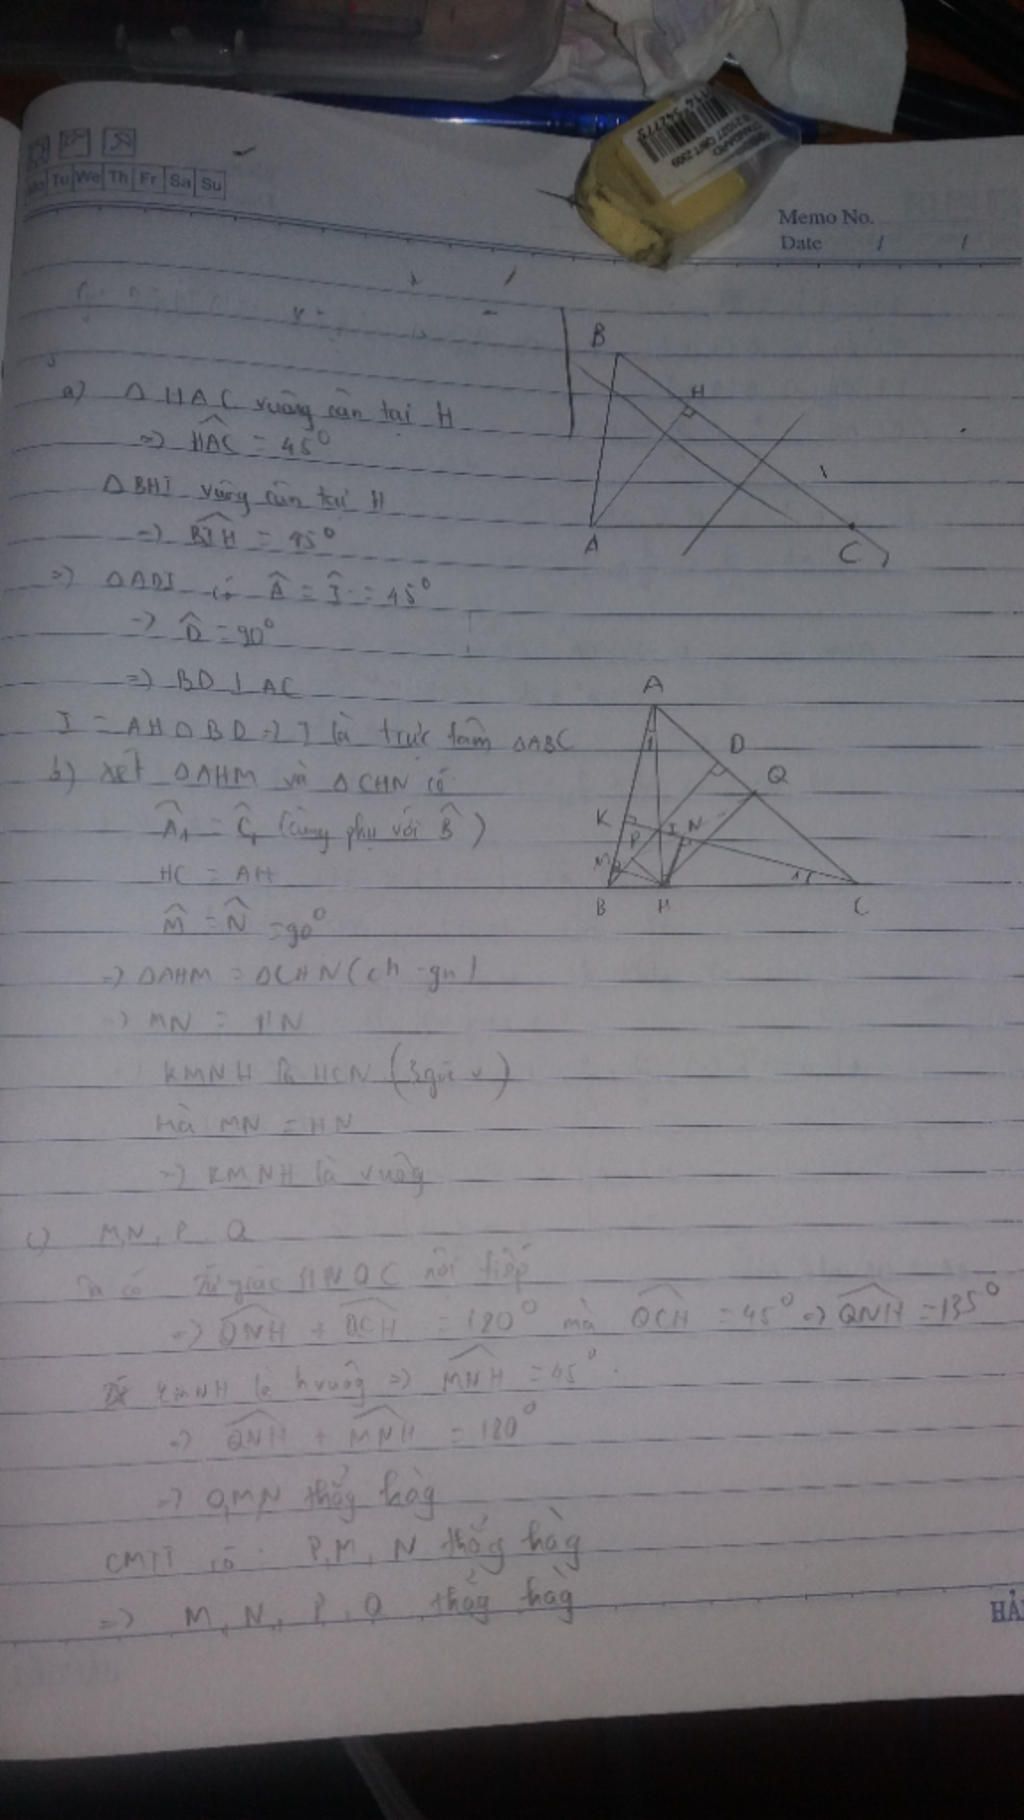 Mo Tu We Th Fr Sa Su
STANDARD
Memo No.
Date / /
a) Δ HAC vuông cân tại H
=> HAC = 45°
Δ BHI vuông cân tại H
=> BIH = 45°
=> ΔADI có Â = Î = 45°
=> D̂ = 90°
=> BD ⊥ AC
I = AH ∩ BD => I là trực tâm ΔABC
b) Xét ΔAHM và ΔCHN có
Â₁ = Ĉ₁ (cùng phụ với B̂)
HC = AH
M̂ = N̂ = 90°
=> ΔAHM = ΔCHN (ch - gn)
=> MN = HN
KMNH là HCN (3 góc v)
mà MN = HN
=> KMNH là vuông
c) M, N, P, Q
Ta có tứ giác HNQC nội tiếp
=> QNH + QCH = 180° mà QCH = 45° => QNH = 135°
KMNH là hvuông => MNH = 45°.
=> QNH + MNH = 180°
=> Q, M, N thẳg hàg
CMTT có : P, M, N thẳg hàg
=> M, N, P, Q thẳg hàg
B
H
A
C
A
D
Q
K
P
I
N
M
B
H
C
HẢI